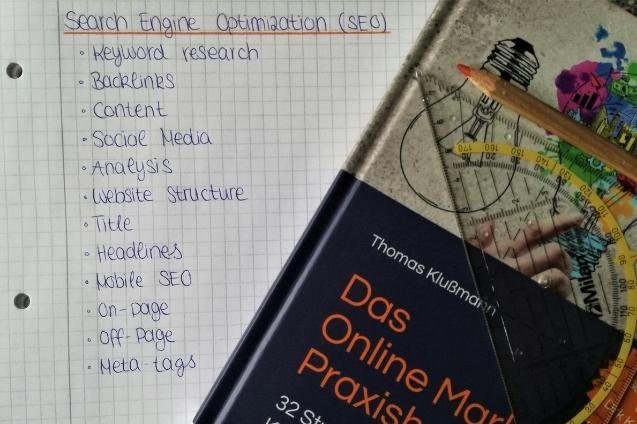 Search Engine Optimization (SEO)
• Keyword research
• Backlinks
• Content
• Social Media
• Analysis
• Website Structure
• Title
• Headlines
• Mobile SEO
• On-page
• Off-Page
• Meta-tags
Thomas Klußmann
Das
Online Mar
Praxisb
32 St